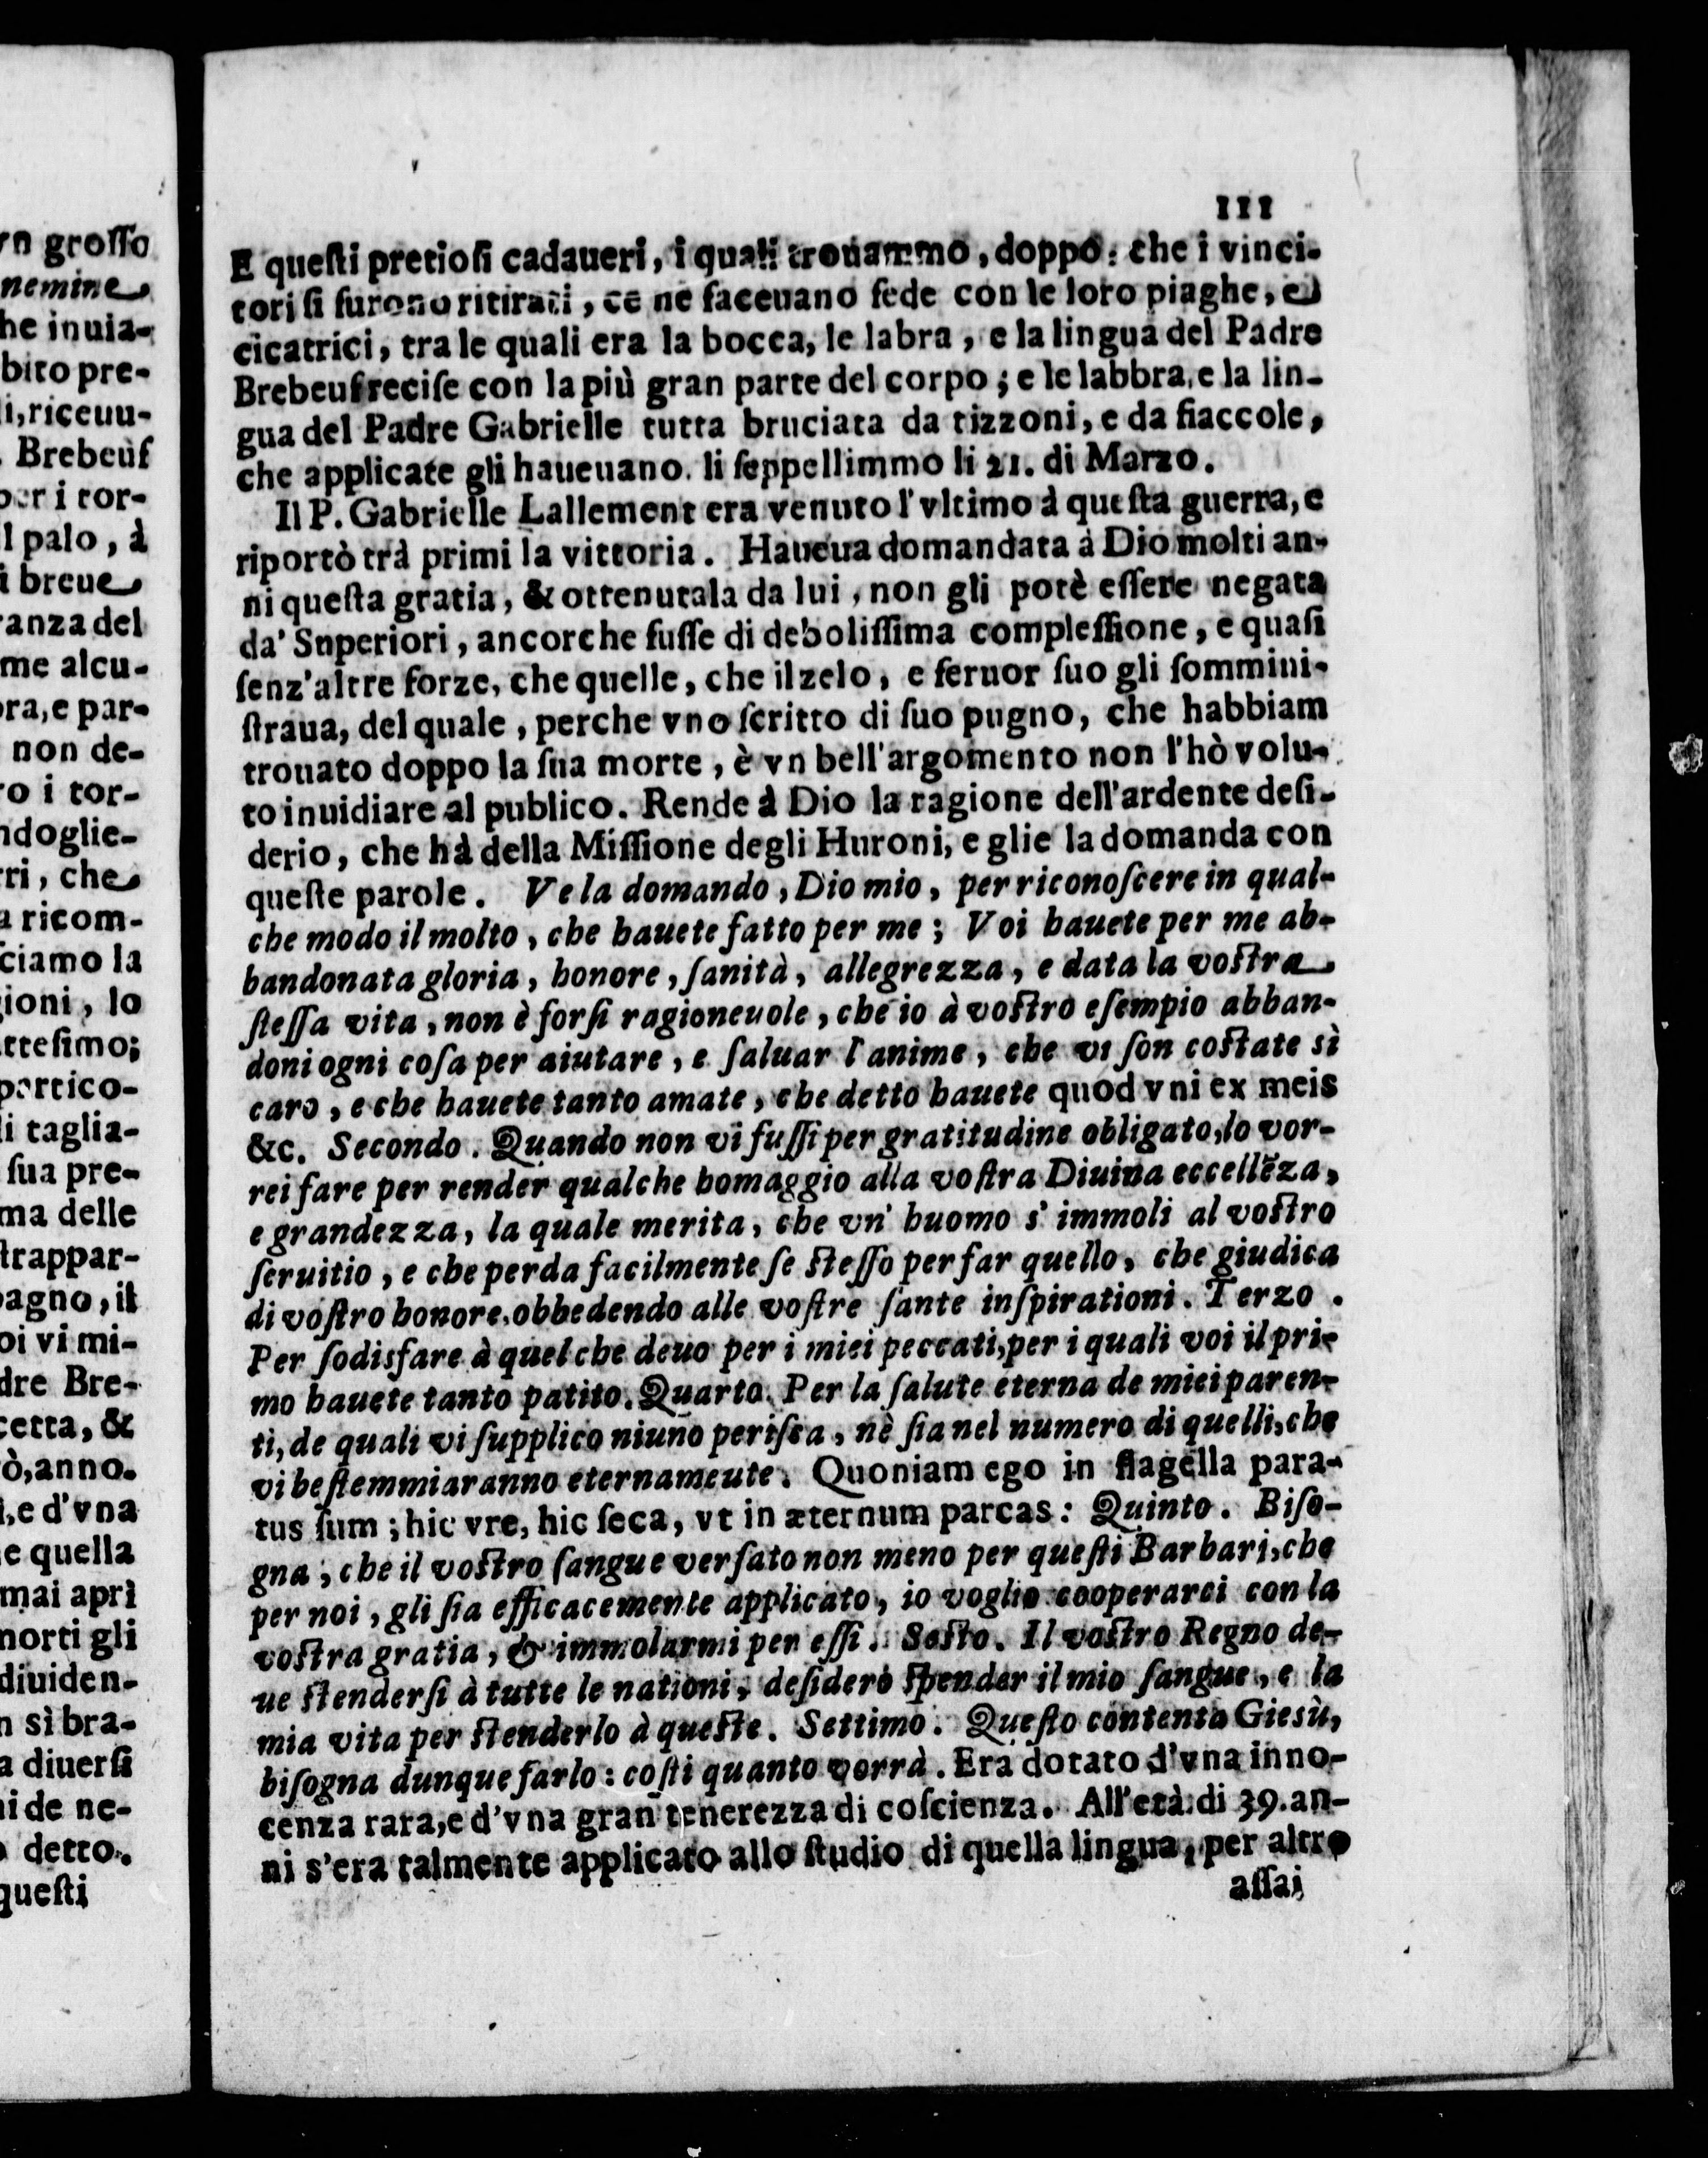 rn grosso
nemine
he inuia-
bito pre-
li, riceuu-
. Brebeuf
per i tor-
l palo, à
i breue
ranza del
me alcu-
ora, e par-
non de-
ro i tor-
ndoglie-
rri, che
a ricom-
sciamo la
gioni, lo
ttesimo;
portico-
li taglia-
sua pre-
ma delle
strappar-
pagno, il
oi vi mi-
dre Bre-
cetta, &
ò, anno.
l, e d'vna
e quella
mai aprì
morti gli
diuiden-
n sì bra-
a diuersi
ui de ne-
o detto.
questi
111
E questi pretiosi cadaueri, i quali trouammo, doppo: che i vinci-
tori si furono ritirati, ce ne faceuano fede con le loro piaghe, e
cicatrici, tra le quali era la bocca, le labra, e la lingua del Padre
Brebeuf recise con la più gran parte del corpo; e le labbra, e la lin-
gua del Padre Gabrielle tutta bruciata da tizzoni, e da fiaccole,
che applicate gli haueuano. li seppellimmo li 21. di Marzo.
Il P. Gabrielle Lallement era venuto l'vltimo à questa guerra, e
riportò trà primi la vittoria. Haueua domandata à Dio molti an-
ni questa gratia, & ottenutala da lui, non gli potè essere negata
da' Snperiori, ancorche fusse di debolissima complessione, e quasi
senz'altre forze, che quelle, che il zelo, e feruor suo gli sommini-
straua, del quale, perche vno scritto di suo pugno, che habbiam
trouato doppo la sua morte, è vn bell'argomento non l'hò volu-
to inuidiare al publico. Rende à Dio la ragione dell'ardente desi-
derio, che hà della Missione degli Huroni, e glie la domanda con
queste parole. Ve la domando, Dio mio, per riconoscere in qual-
che modo il molto, che hauete fatto per me; Voi hauete per me ab-
bandonata gloria, honore, sanità, allegrezza, e data la vostra
stessa vita, non è forsi ragioneuole, che io à vostro esempio abban-
doni ogni cosa per aiutare, e saluar l'anime, che vi son costate sì
caro, e che hauete tanto amate, che detto hauete quod vni ex meis
&c. Secondo. Quando non vi fussi per gratitudine obligato, lo vor-
rei fare per render qualche homaggio alla vostra Diuina eccellẽza,
e grandezza, la quale merita, che vn' huomo s' immoli al vostro
seruitio, e che perda facilmente se stesso per far quello, che giudica
di vostro honore, obbedendo alle vostre sante inspirationi. Terzo.
Per sodisfare à quel che deuo per i miei peccati, per i quali voi il pri-
mo hauete tanto patito. Quarto. Per la salute eterna de miei paren-
ti, de quali vi supplico niuno perisca, nè sia nel numero di quelli, che
vi bestemmiaranno eternameute. Quoniam ego in flagella para-
tus sum; hic vre, hic seca, vt in æternum parcas: Quinto. Biso-
gna, che il vostro sangue versato non meno per questi Barbari, che
per noi, gli sia efficacemente applicato, io voglio cooperarci con la
vostra gratia, & immolarmi per essi. Sesto. Il vostro Regno de-
ue stendersi à tutte le nationi, desidero spender il mio sangue, e la
mia vita per stenderlo à queste. Settimo. Questo contenta Giesù,
bisogna dunque farlo: costi quanto vorrà. Era dotato d'vna inno-
cenza rara, e d'vna gran tenerezza di coscienza. All'età di 39. an-
ni s'era talmente applicato allo studio di quella lingua, per altro
assai